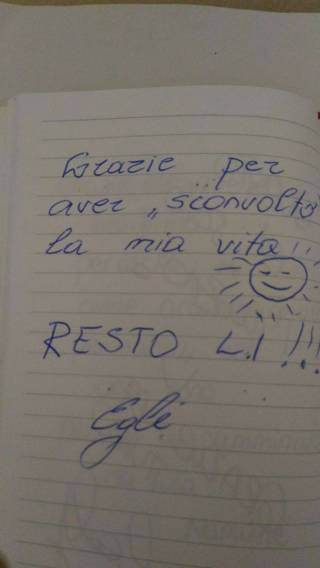 Grazie per
aver „sconvolto"
la mia vita
RESTO LI !!!
Egli